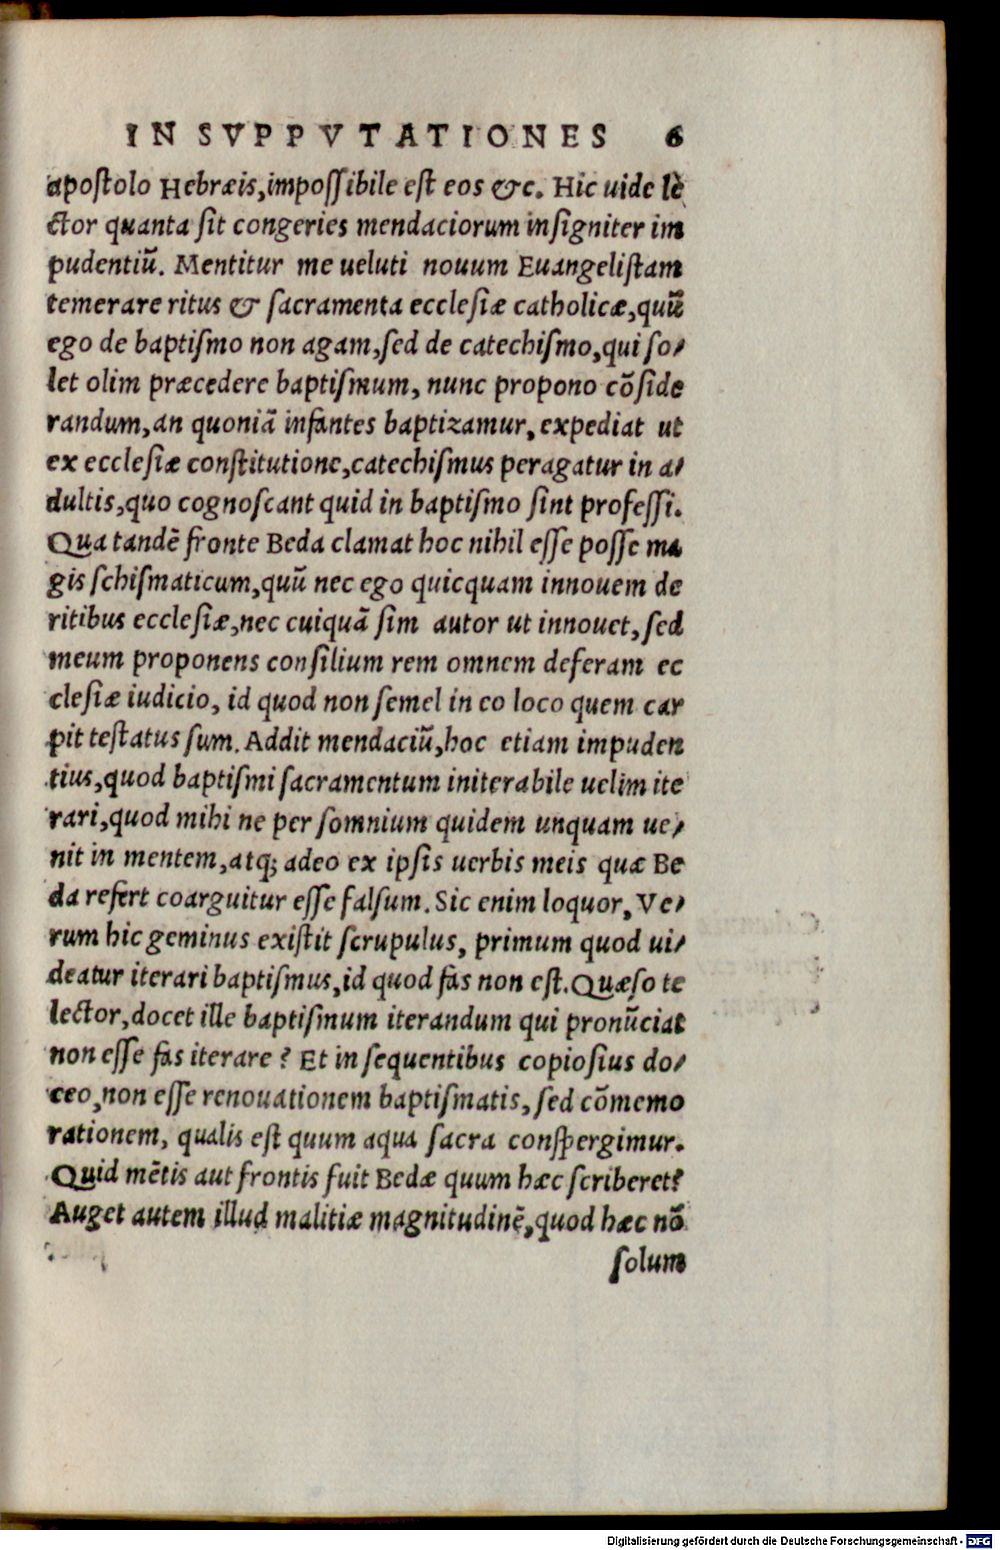 IN SVPPVTATIONES 6
apostolo Hebræis, impossibile est eos &c. Hic uide lè
ctor quanta sit congeries mendaciorum insigniter im
pudentiũ. Mentitur me ueluti nouum Euangelistam
temerare ritus & sacramenta ecclesiæ catholicæ, quũ
ego de baptismo non agam, sed de catechismo, qui so-
let olim præcedere baptismum, nunc propono cõside
randum, an quoniã infantes baptizamur, expediat ut
ex ecclesiæ constitutione, catechismus peragatur in a-
dultis, quo cognoscant quid in baptismo sint professi.
Qua tandẽ fronte Beda clamat hoc nihil esse posse ma
gis schismaticum, quũ nec ego quicquam innouem de
ritibus ecclesiæ, nec cuiquã sim autor ut innouet, sed
meum proponens consilium rem omnem deferam ec
clesiæ iudicio, id quod non semel in eo loco quem car
pit testatus sum. Addit mendaciũ, hoc etiam impuden
tius, quod baptismi sacramentum initerabile uelim ite
rari, quod mihi ne per somnium quidem unquam ue-
nit in mentem, atq; adeo ex ipsis uerbis meis quæ Be
da refert coarguitur esse falsum. Sic enim loquor, Ve-
rum hic geminus existit scrupulus, primum quod ui-
deatur iterari baptismus, id quod fas non est. Quæso te
lector, docet ille baptismum iterandum qui pronũciat
non esse fas iterare? Et in sequentibus copiosius do-
ceo, non esse renouationem baptismatis, sed cõmemo
rationem, qualis est quum aqua sacra conspergimur.
Quid mẽtis aut frontis fuit Bedæ quum hæc scriberet?
Auget autem illud malitiæ magnitudinẽ, quod hæc nõ
solum
Digitalisierung gefördert durch die Deutsche Forschungsgemeinschaft - DFG